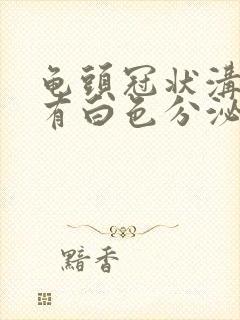 龟頭冠状溝
有白色分泌
黯香